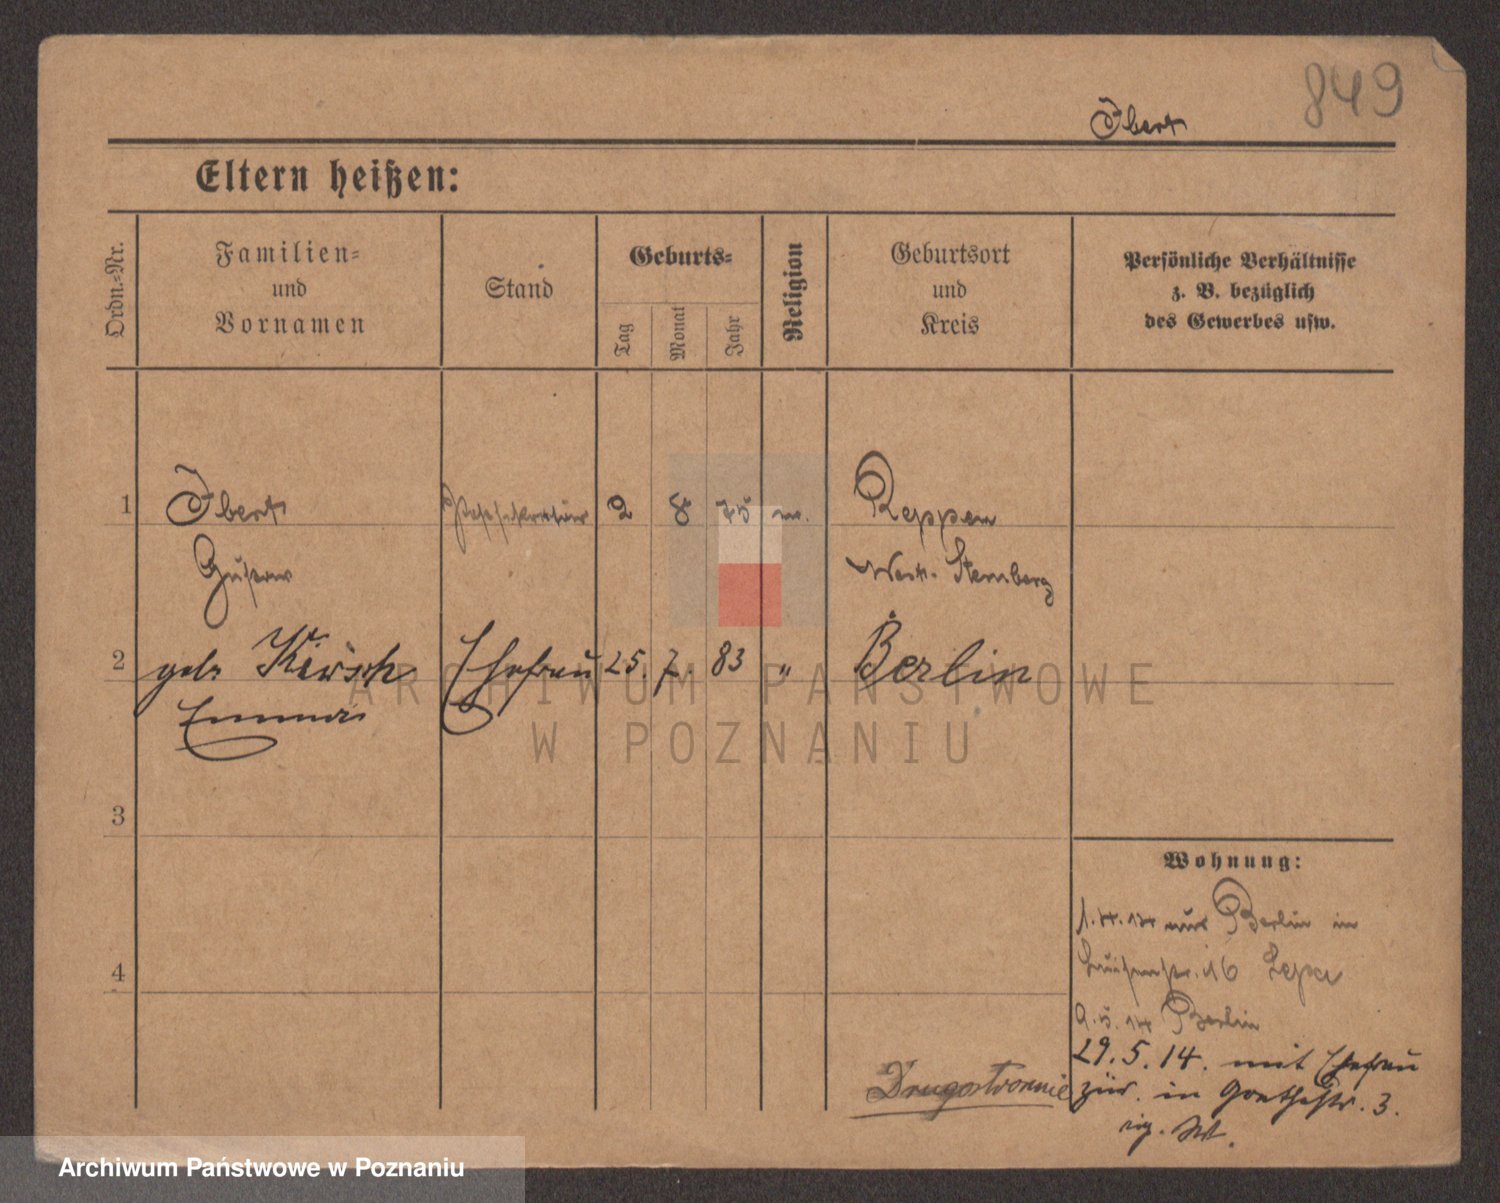 849
Ibert
Eltern heißen:
Ordn.=Nr.
Familien=
und
Vornamen
Stand
Geburts=
Tag
Monat
Jahr
Religion
Geburtsort
und
Kreis
Persönliche Verhältnisse
z. B. bezüglich
des Gewerbes usw.
1 Ibert Postsekretär 2 8 75 ev. Reppen
Gustav West-Sternberg
2 geb. Kirsch Ehefrau 25. 7. 83 " Berlin
Emma
3
4
Wohnung:
1.4.14 aus Berlin in
Luisenstr. 16
9.5.14 Berlin
29.5.14. mit Ehefrau
zur. in Goethestr. 3.
ARCHIWUM PAŃSTWOWE
W POZNANIU
Archiwum Państwowe w Poznaniu